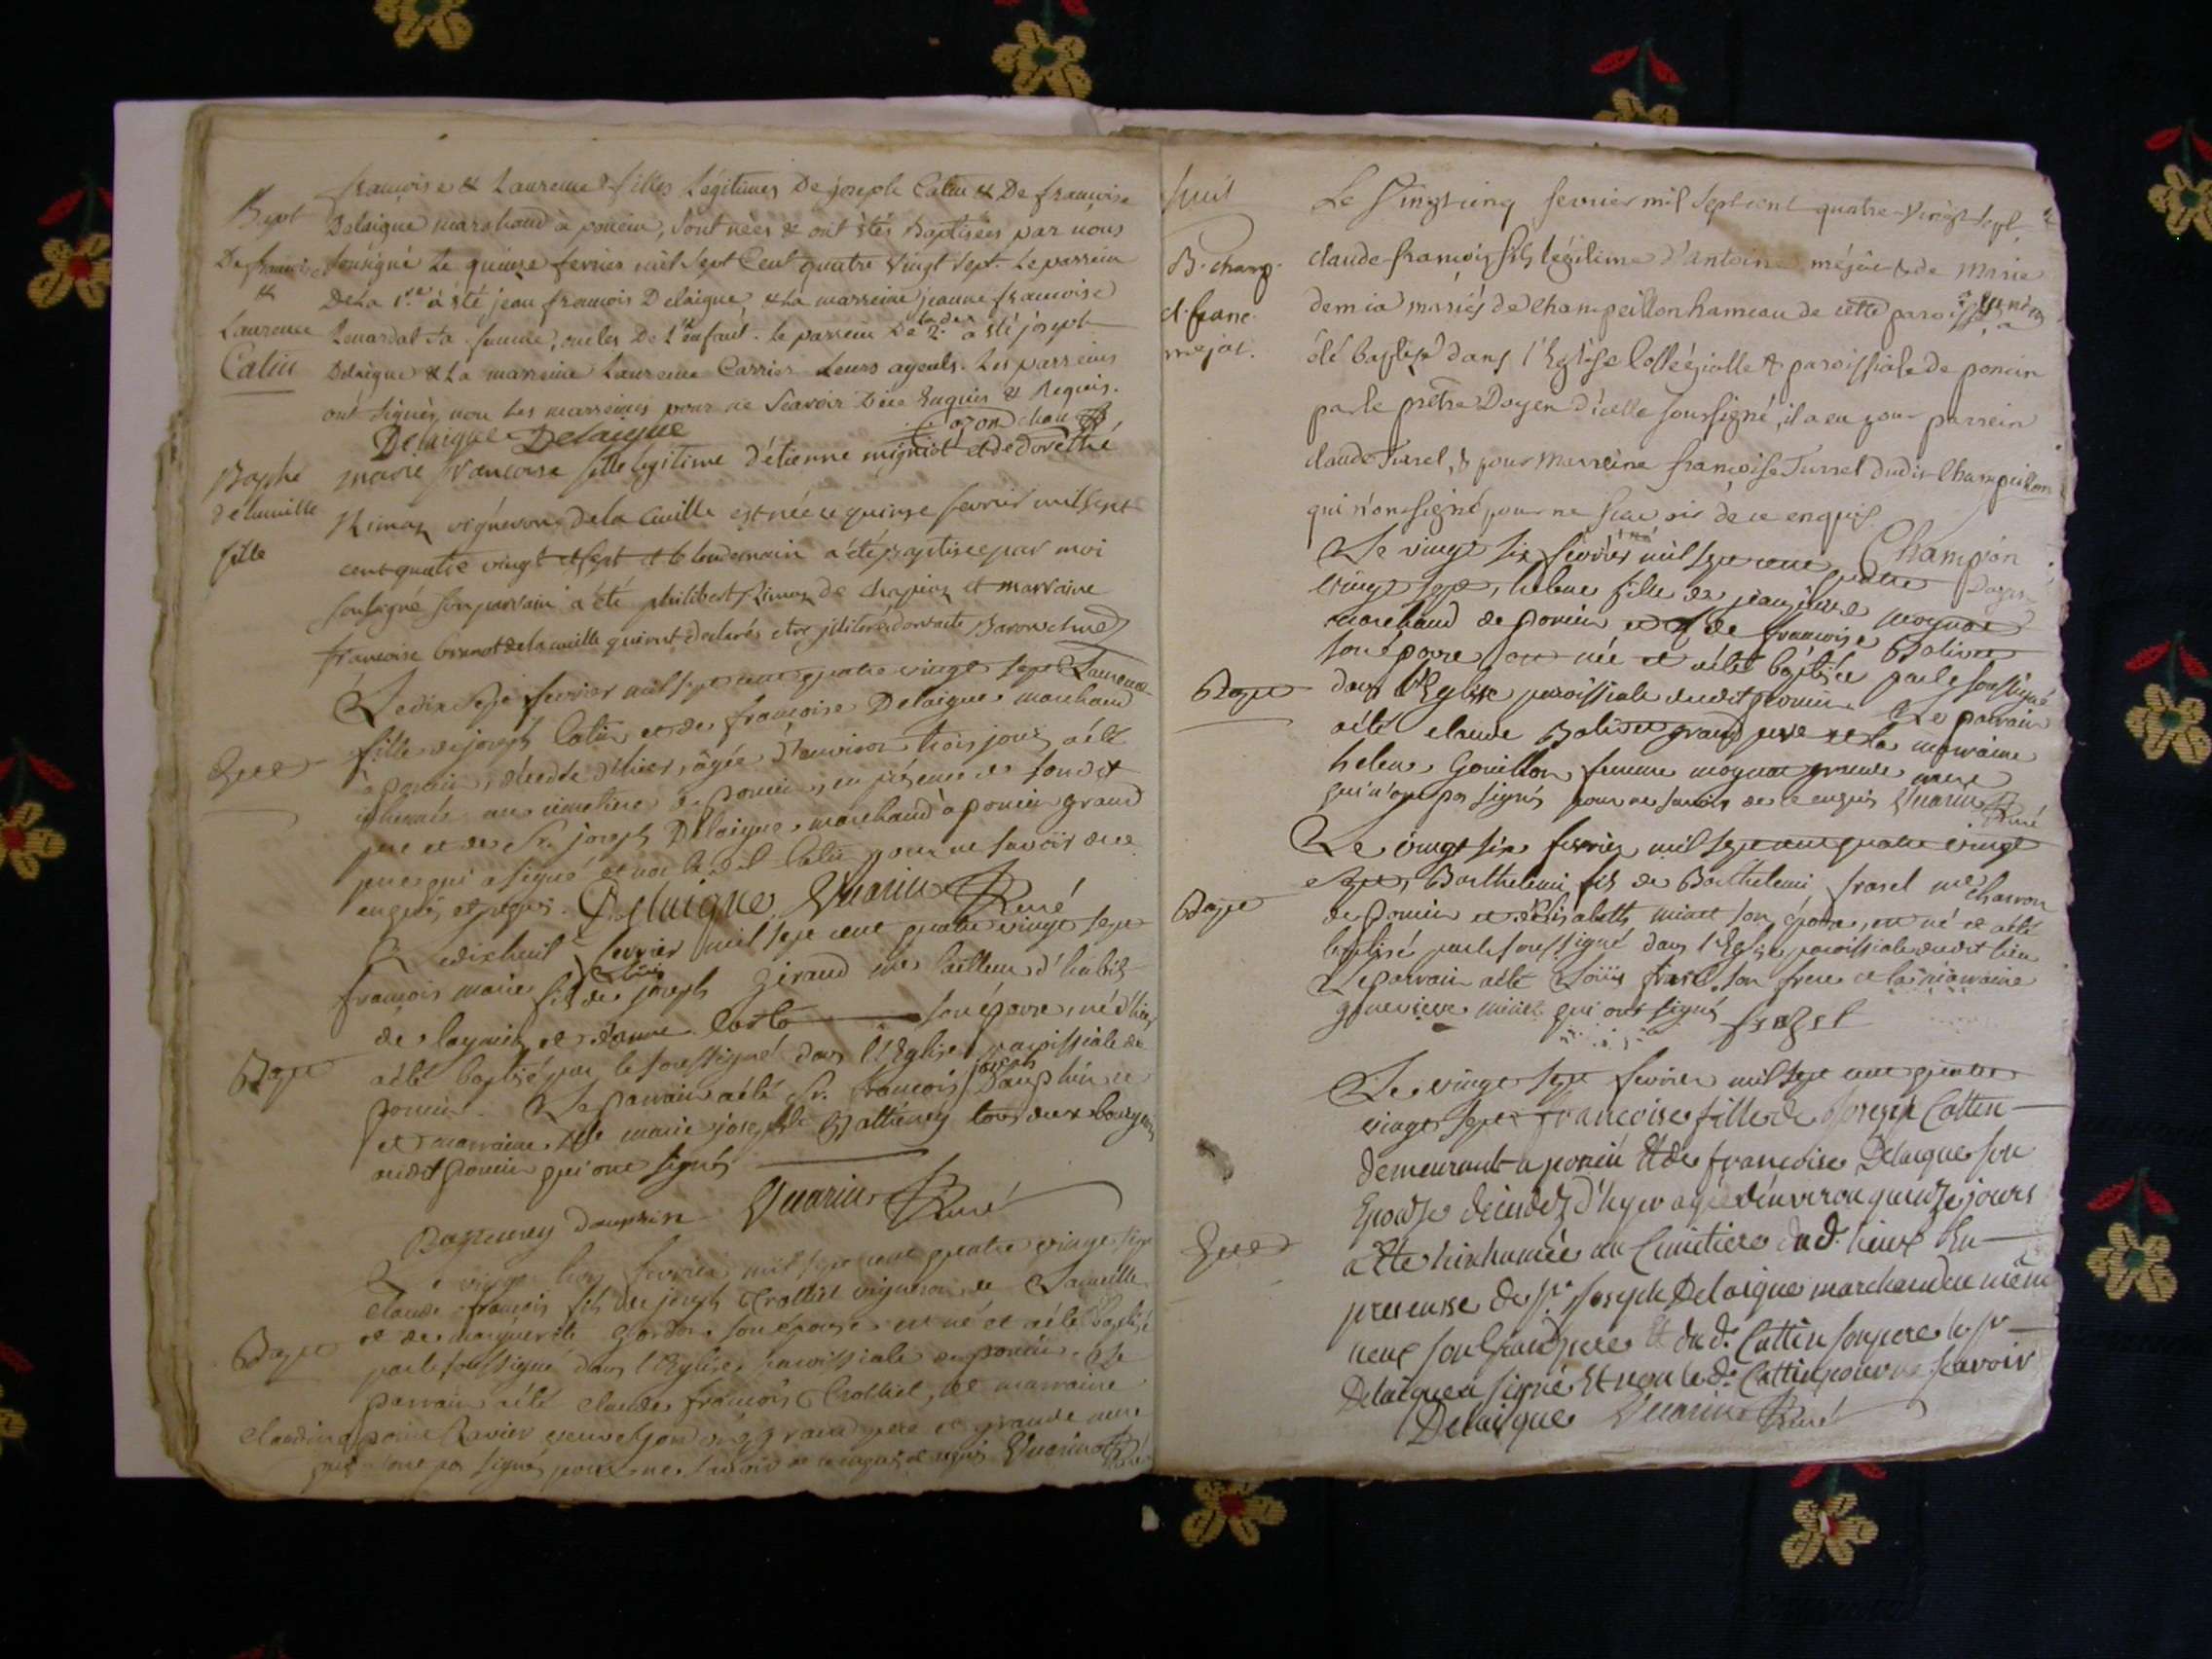 Bapt
De francoise
&
Laurence
Catin
francoise & Laurence filles Légitimes De joseph Catin & De francoise
Delaigue marchand à poncin, sont nées & ont étés Baptisées par nous
sousigné Le quinze fevrier mil Sept Cent quatre vingt Sept. Le parrein
De La 1.re à été jean francois Delaigue, & La marreine jeanne francoise
sa femme, oncles De L'enfant. Le parrein De la 2.de a été joseph
Delaigue & La marreine Laurence Carrier Leurs ayeuls. Les parreins
ont signés, non Les marreines pour ne Scavoir De ce Enquis & Requis.
Delaigue Delaigue
Baptê
de lamille
fille
marie francoise fille legitime d'étienne migniot et de dorethé
Rimoz vigneron de la Cueille est née ce quinze fevrier mil sept
cent quatre vingt et sept et le lendemain a été baptisée par moi
sousigné son parrain a été philibert Rimoz de chapioz et marraine
francoise de la cueille qui ont declarés etre illiterés dont acte
Le dix sept fevrier mil sept cent quatre vingt sept Laurence
fille de joseph Catin et de françoise Delaigue marchand
à poncin, décédée d'hier, âgée d'environ trois jours a été
inhumée au cimetiere de poncin, en présence de son dit
pere et de Sr. joseph Delaigue marchand à poncin grand
pere qui a signé et non le dit Catin pour ne savoir de ce
enquis et requis. Delaigue Vuarin Curé
Bapt
Le dix huit fevrier mil sept cent quatre vingt sept
françois marie fils de joseph Giraud me tailleur d'habits
de et d'anne Costo son épouse, né d'hier
a été baptisé par le soussigné dans l'Eglise paroissiale de
poncin. Le parrain a été Sr. francois joseph Dauphin
et marraine Dlle marie josephte Battheney tous deux bourgeois
dudit poncin qui ont signés
dauphin Vuarin Curé
Bapt
Le vingt trois fevrier mil sept cent quatre vingt sept
Claude françois fils de joseph Crolliet vigneron de
et de marguerite Gordon son épouse est né et a été baptisé
par le soussigné dans l'Eglise paroissiale de poncin. Le
parrain a été claude françois Crolliet, et marraine
Ravier grand pere et grande mere
qui n'ont pas signés pour ne savoir de ce enquis et requis Vuarin Curé
B. champ.
cl. franc.
mejat.
Le Vingt cinq fevrier mil Sept cent quatre-Vingt Sept
claude-françois fils légitime d'antoine méjat & de marie
demia mariés de Champeillon hameau de cette paroisse, a
été baptisé dans l'Eglise Collégialle & paroissiale de poncin
par le prêtre Doyen d'icelle soussigné, il a eu pour parrein
claude Turrel, & pour marreine françoise Turrel dudit Champeillon
qui n'ont signé pour ne scavoir de ce enquis.
Champion
Doyen
Bapt
Le vingt six fevrier mil sept cent quatre
vingt sept, helene fille de moynat
marchand de poncin et de françoise Bolivet
son épouse est née et a été baptisée par le soussigné
dans l'Eglise paroissiale dudit poncin. Le parrain
a été claude Bolivet grand pere et la marraine
helene Gouillon femme moynat grande mere
qui n'ont pas signés pour ne savoir de ce enquis Vuarin Curé
Bapt
Le vingt six fevrier mil sept cent quatre vingt
sept, Barthelemi fils de Barthelemi frasel me charron
de poncin et d'Elisabeth miatt son épouse, est né et a été
baptisé par le soussigné dans l'Eglise paroissiale dudit lieu
Le parrain a été Loüis frasel son frere et la marraine
genevieve qui ont signés
frazel
Le vingt sept fevrier mil sept cent quatre
vingt sept francoise fille de Joseph Cattin
demeurant a poncin Et de francoise Delaigue son
Epouze decedez d'hyer agée d'environ quinze jours
a Eté hinhumée au Cimitiere du d. lieux En
presence de sr. Joseph Delaigue marchand au même
lieux son Grand pere Et du d. Cattin son pere le sr
Delaigue a signé Et non le d. Cattin pour ne scavoir
Delaigue Vuarin Curé